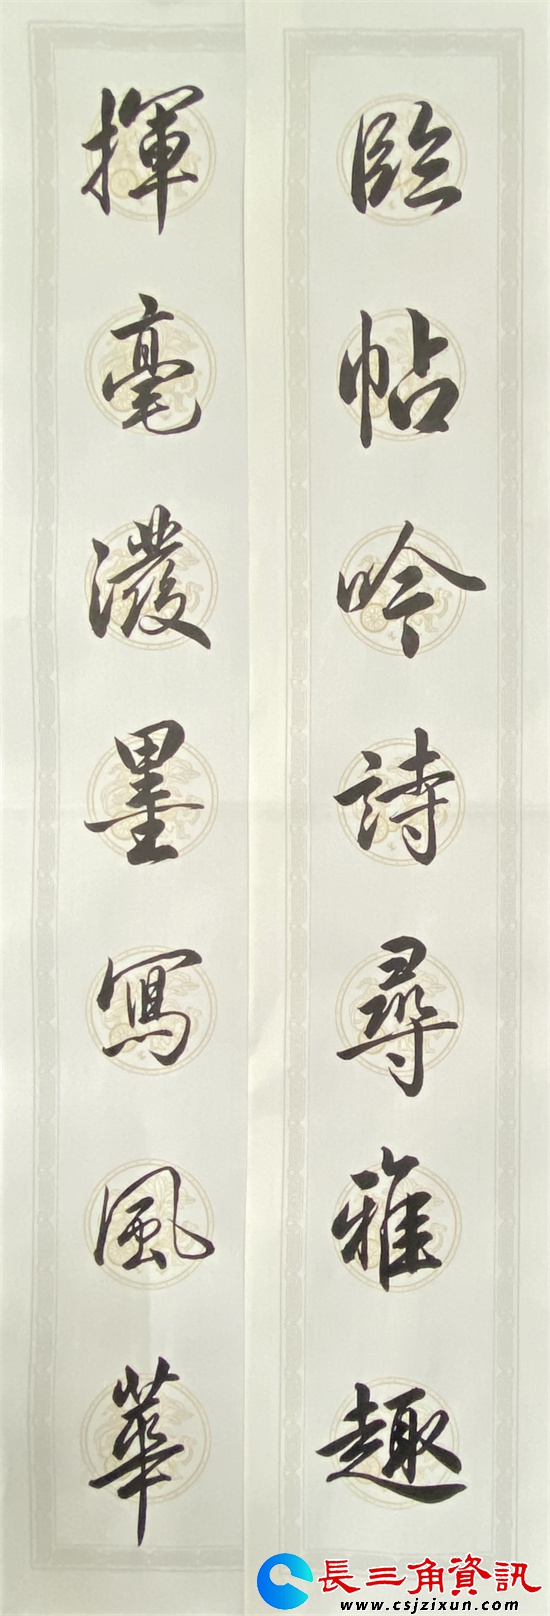 臨帖吟詩尋雅趣
揮毫潑墨寫風華
長三角資訊
www.csjzixun.com